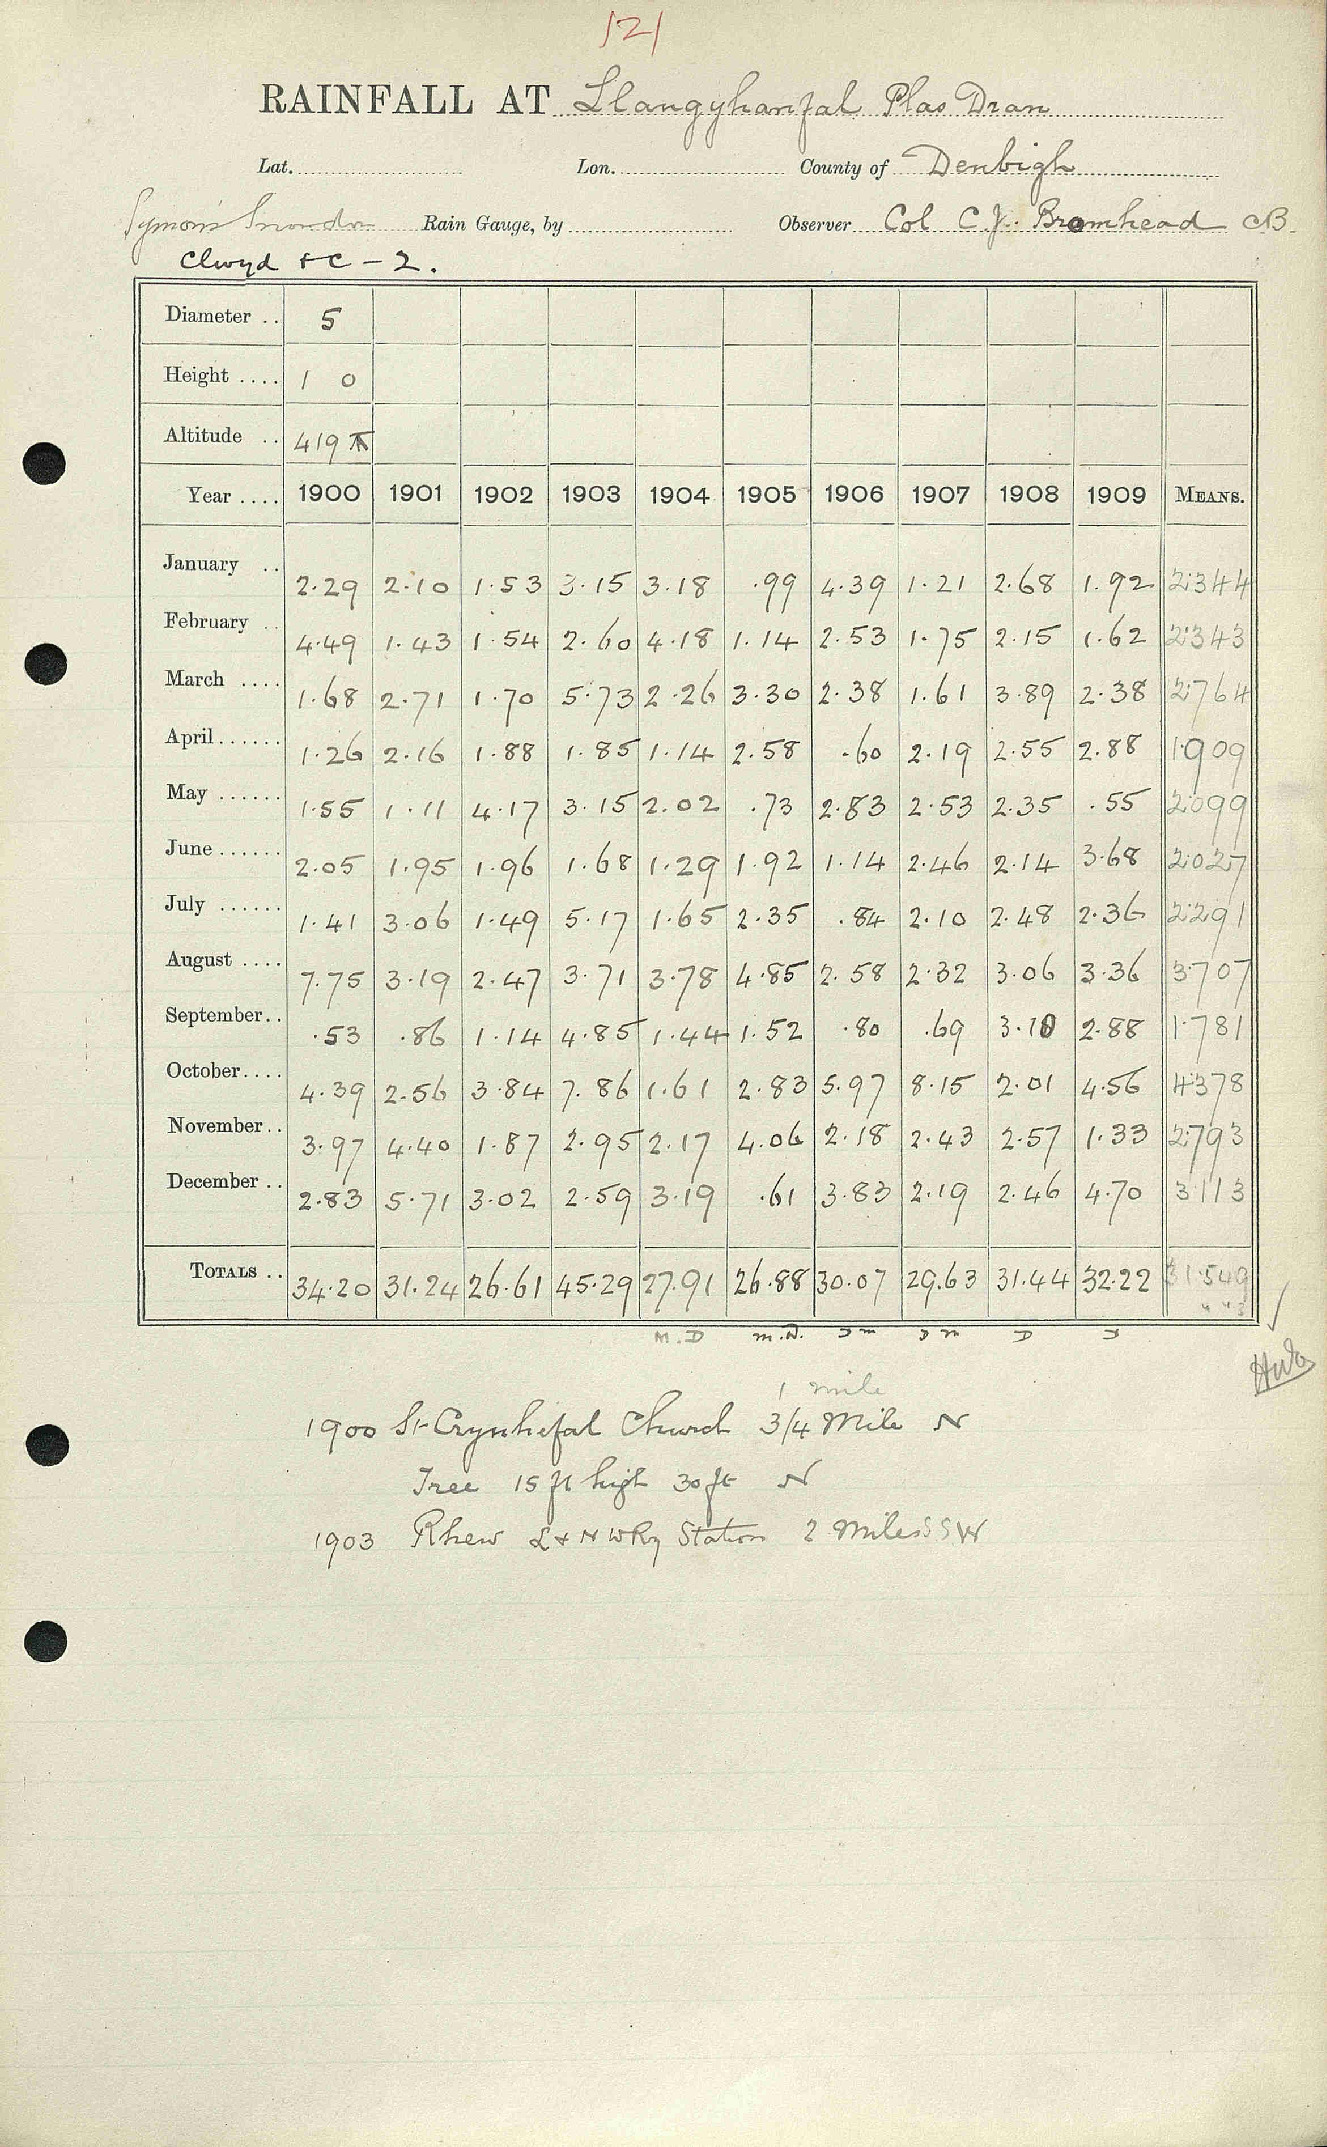 121
RAINFALL AT Llangyhanfal Plas Dran
Lat. Lon. County of Denbigh
Symons Snowdon Rain Gauge, by Observer Col C.J. Bromhead CB
Clwyd &c - 2.
Diameter .. 5
Height .... 1 0
Altitude .. 419
Year .... 1900 1901 1902 1903 1904 1905 1906 1907 1908 1909 MEANS.
January .. 2.29 2.10 1.53 3.15 3.18 .99 4.39 1.21 2.68 1.92 2.344
February .. 4.49 1.43 1.54 2.60 4.18 1.14 2.53 1.75 2.15 1.62 2.343
March .... 1.68 2.71 1.70 5.73 2.26 3.30 2.38 1.61 3.89 2.38 2.764
April...... 1.26 2.16 1.88 1.85 1.14 2.58 .60 2.19 2.55 2.88 1.909
May ...... 1.55 1.11 4.17 3.15 2.02 .73 2.83 2.53 2.35 .55 2.099
June...... 2.05 1.95 1.96 1.68 1.29 1.92 1.14 2.46 2.14 3.68 2.027
July ...... 1.41 3.06 1.49 5.17 1.65 2.35 .84 2.10 2.48 2.36 2.291
August .... 7.75 3.19 2.47 3.71 3.78 4.85 2.58 2.32 3.06 3.36 3.707
September.. .53 .86 1.14 4.85 1.44 1.52 .80 .69 3.10 2.88 1.781
October.... 4.39 2.56 3.84 7.86 1.61 2.83 5.97 8.15 2.01 4.56 4.378
November.. 3.97 4.40 1.87 2.95 2.17 4.06 2.18 2.43 2.57 1.33 2.793
December .. 2.83 5.71 3.02 2.59 3.19 .61 3.83 2.19 2.46 4.70 3.113
TOTALS .. 34.20 31.24 26.61 45.29 27.91 26.88 30.07 29.63 31.44 32.22 31.549
M.D
1 mile
1900 St Crynhefal Church 3/4 Mile N
Tree 15 ft high 30 ft N
1903 Rhew L & N W Ry Station 2 Miles SSW